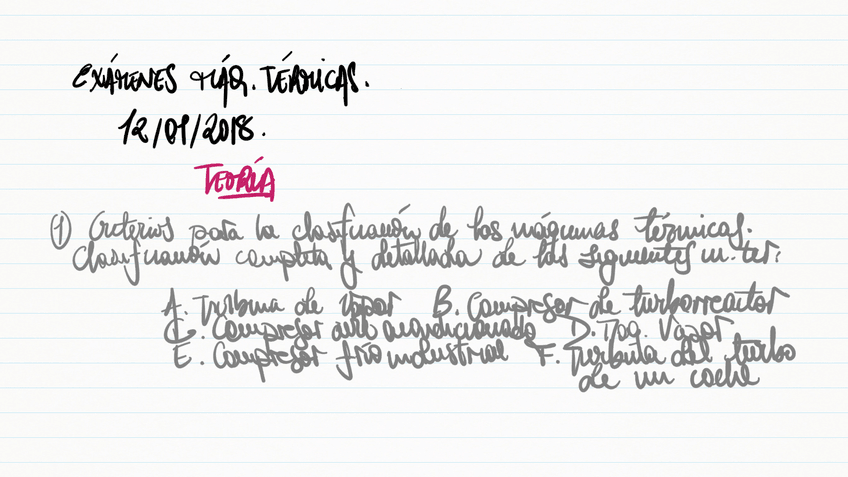 EXÁMENES MÁQ. TÉRMICAS.
12/01/2018.
TEORÍA
① Criterios para la clasificación de las máquinas térmicas.
Clasificación completa y detallada de las siguientes m. ter:
A. Turbina de vapor B. Compresor de turborreactor
C. Compresor aire acondicionado D. Vapor
E. Compresor frío industrial F. Turbina del turbo
de un coche